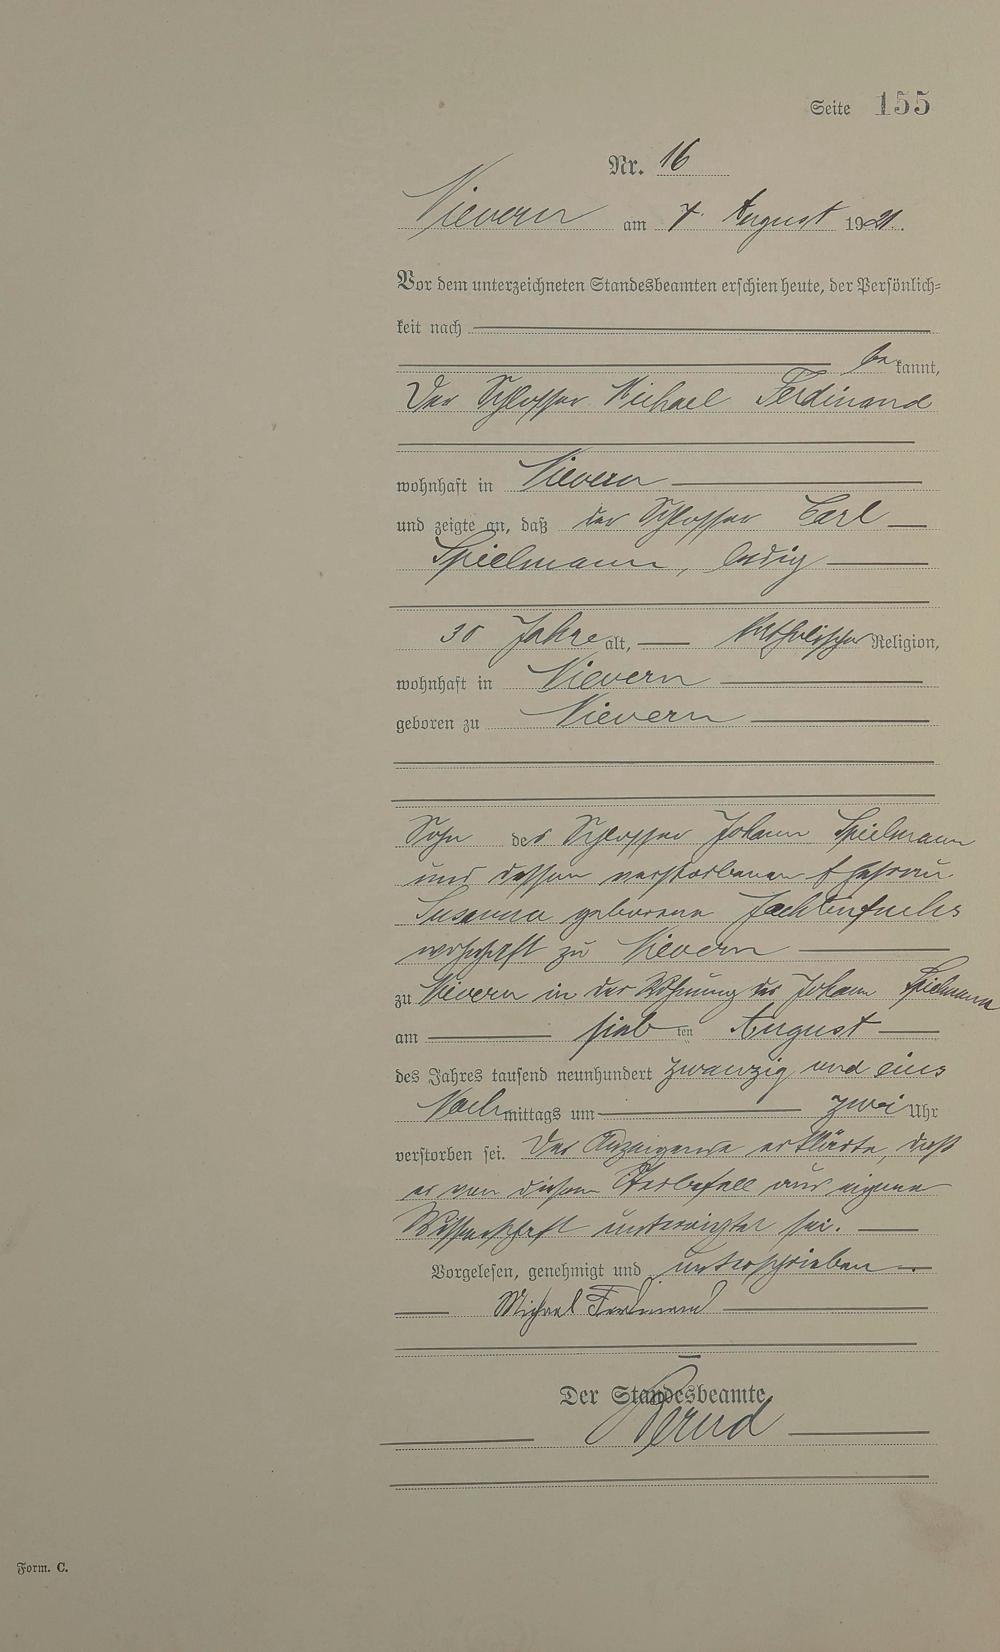 Seite 155
Nr. 16
Nievern am 7. August 1921.
Vor dem unterzeichneten Standesbeamten erschien heute, der Persönlich=
keit nach
be kannt,
Der Schlosser Michael Ferdinand
wohnhaft in Nievern
und zeigte an, daß der Schlosser Carl
Spielmann, ledig
30 Jahre alt, katholischer Religion,
wohnhaft in Nievern
geboren zu Nievern
Sohn des Schlosser Johann Spielmann
und dessen verstorbenen Ehefrau
Susanna geborene
wohnhaft zu Nievern
zu Nievern in der Wohnung des Johann Spielmann
am sieb ten August
des Jahres tausend neunhundert zwanzig und eins
Nach mittags um zwei Uhr
verstorben sei. Der Anzeigende erklärte, daß
er von diesem Sterbefall aus eigene
Wissenschaft unterrichtet sei.
Vorgelesen, genehmigt und unterschrieben
Michael Ferdinand
Der Standesbeamte
Bernd
Form. C.